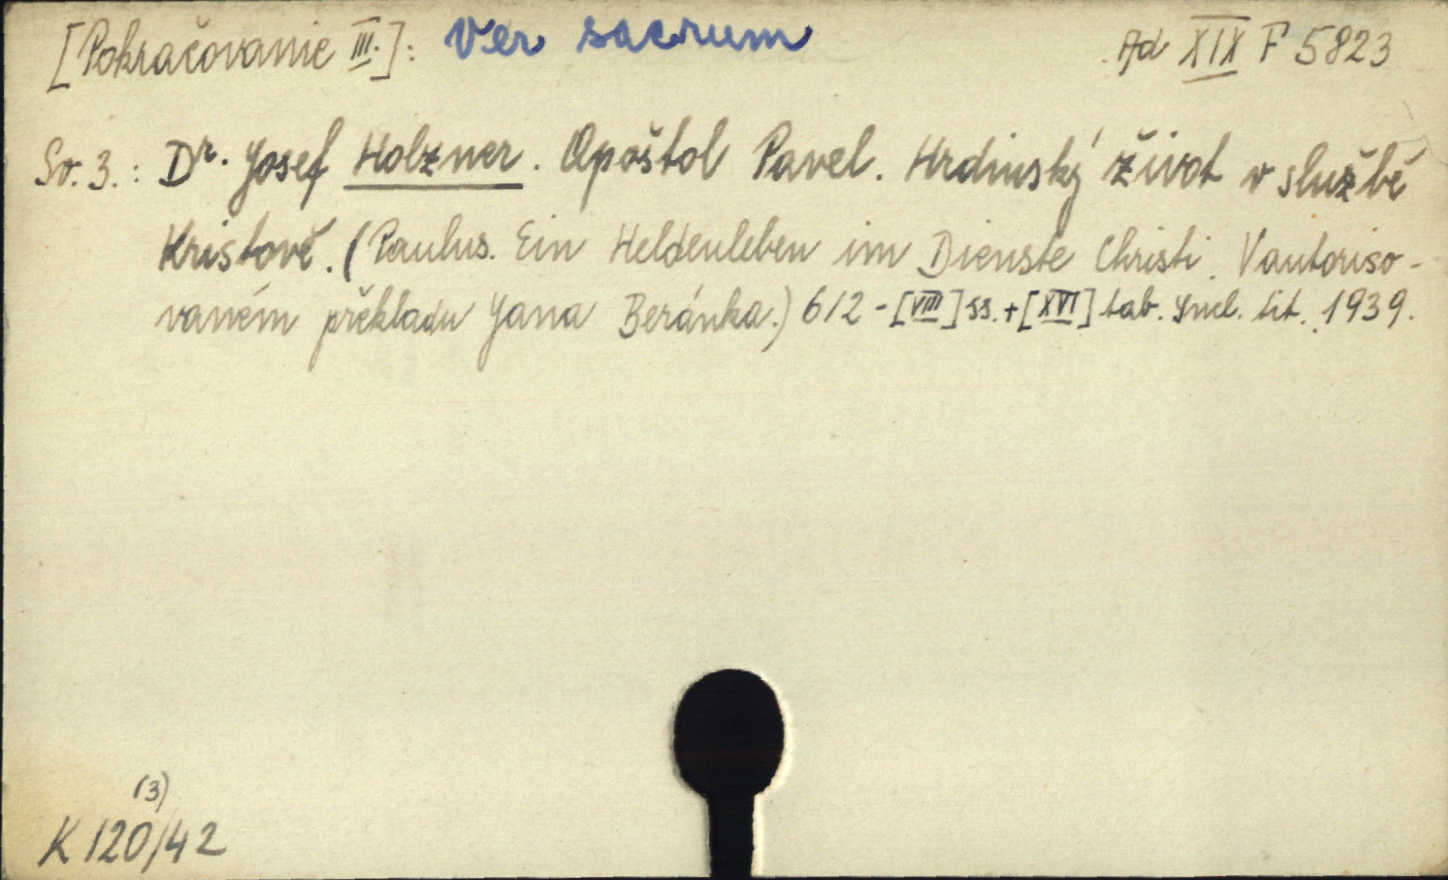 [Pokračovanie III.]: Ver sacrum Ad XIX F 5823
Sv. 3.: Dr. Josef Holzner. Apoštol Pavel. Hrdinský život v službě
Kristově. (Paulus. Ein Heldenleben im Dienste Christi. V autoriso-
vaném překladu Jana Beránka.) 612-[VIII] ss. + [XVI] tab. Incl. tit. 1939.
(3)
K 120/42